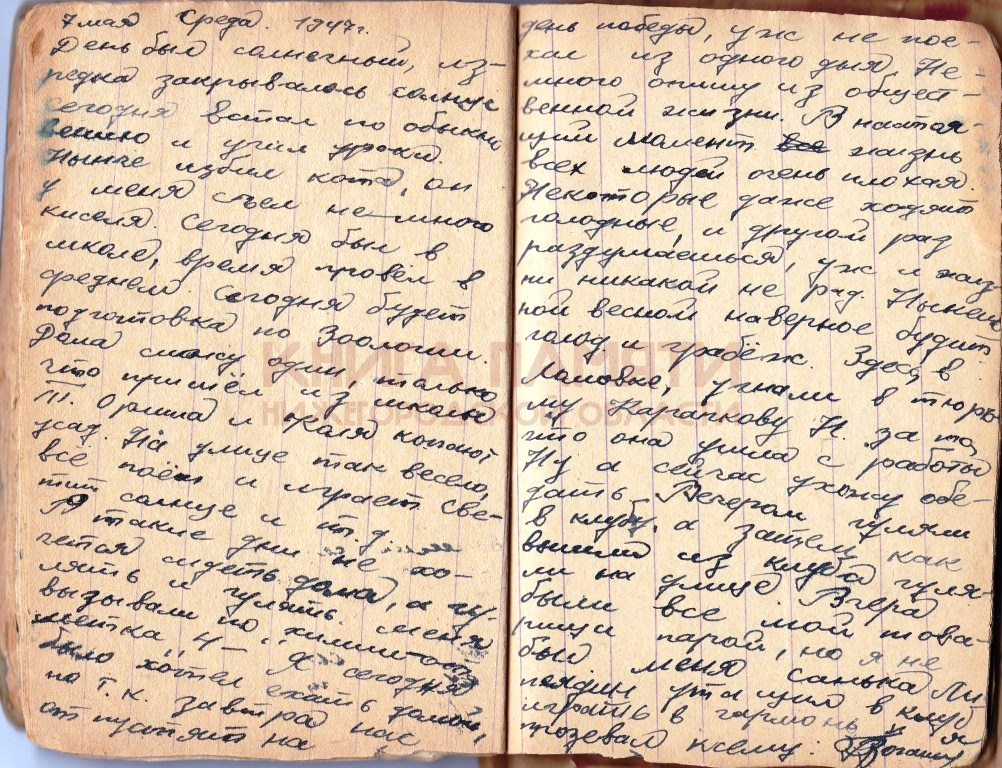 7 мая Среда. 1947г.
День был солнечный, из-
редка закрывалось солнце
сегодня встал по обыкно
вению и учил уроки.
Нынче избил кота, он
у меня съел не много
киселя. Сегодня был в
школе, время провёл в
среднем. Сегодня будет
подготовка по Зоологии.
Дома сижу один, только
что пришёл из школы
Т.П. Ориша и Коля копают
усад. На улице так весело,
всё поёт и играет све-
тит солнце и т.д.
В такие дни не хо-
чется сидеть дома, а гу-
лять и гулять. меня
вызывали по химии
метка „4– Я сегодня
было хотел ехать домой,
но т.к. завтра нас
отпустят на
день победы, уж не пое-
хал из одного дня. Не-
много опишу из общест-
венной жизни. В настоя-
щий момент все жизнь
всех людей очень плохая.
Некоторые даже ходят
голодные, и другой раз
раздумаешься, уж и жиз
ни никакой не рад. Нынеш
ной весной наверное будит
голод и грабёж. Здесь в
Ламовке, угнали в тюрь
му Карапкову Н. за то,
что она ушла с работы
Ну а сейчас ухожу обе-
дать. Вечером гуляли
в клубу, а затем как
вышли из клуба гуля-
ли на улице Вчера
были все мои това-
рищи парой, но я не
был меня Санька Ли
утащил в клуб
играть в гармонь я
прозевал
КНИГА ПАМЯТИ
НИЖЕГОРОДСКОЙ ОБЛАСТИ